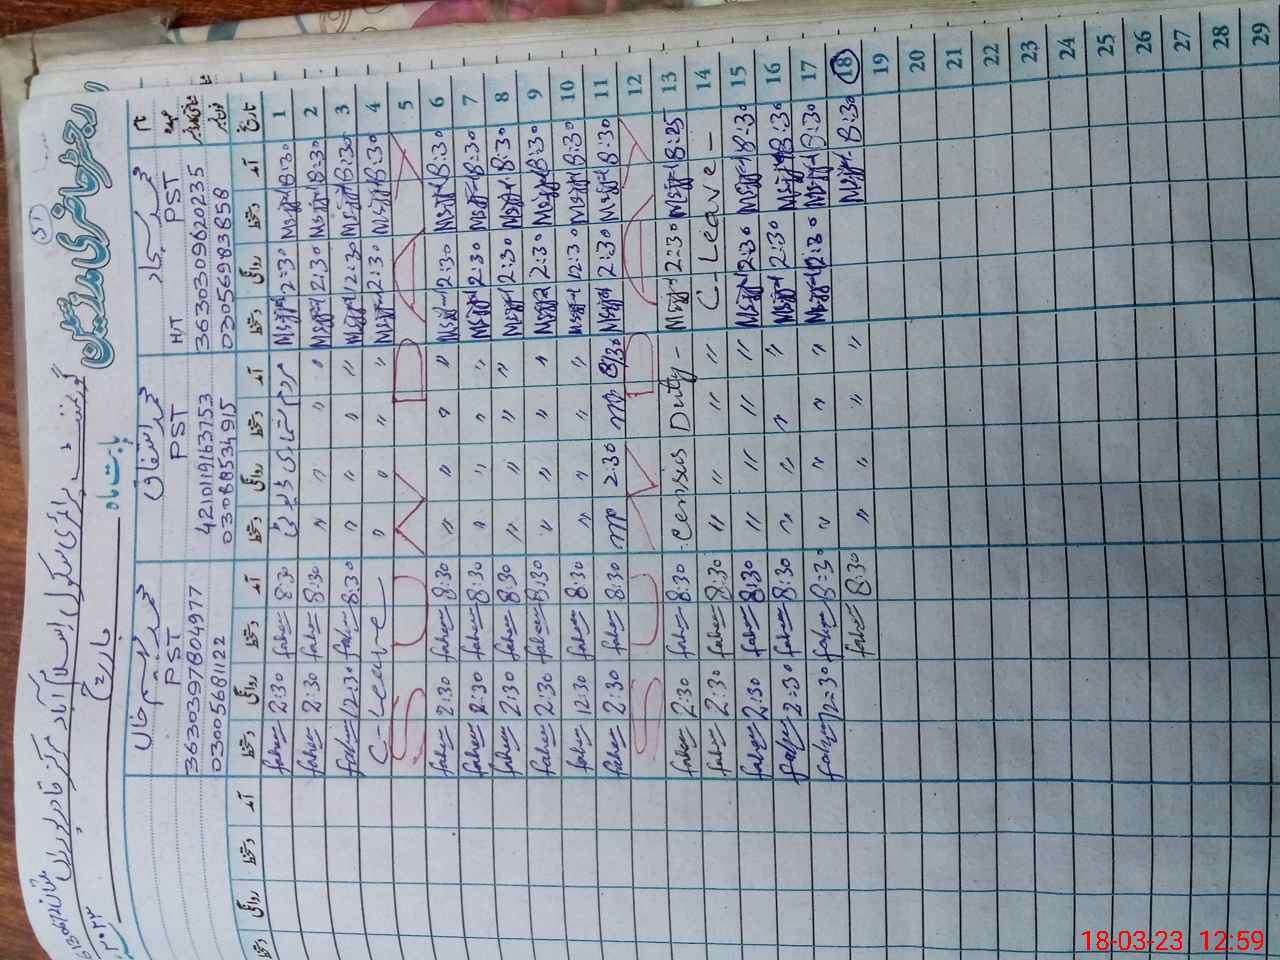 رجسٹر حاضری مدرسین
گورنمنٹ پرائمری سکول اسلام آباد مرکز قادر پور راں
بابت ماہ مارچ ۲۰۲۳
نام
عہدہ
شناختی کارڈ نمبر
فون نمبر
H/T PST
3630309620235
03056983858
محمد اشفاق
PST
4210119163753
03088534915
محمد نعیم خان
PST
3630397804977
03005681122
تاریخ آمد دستخط روانگی دستخط آمد دستخط روانگی دستخط آمد دستخط روانگی دستخط آمد دستخط روانگی دستخط
1 8:30 2:30 مردم شماری ڈیوٹی 8:30 faheem 2:30 faheem
2 8:30 2:30 " " " " 8:30 faheem 2:30 faheem
3 8:30 12:30 " " " " 8:30 faheem 12:30 faheem
4 8:30 2:30 " " " " C-Leave
5 SUNDAY
6 8:30 2:30 " " " " 8:30 faheem 2:30 faheem
7 8:30 2:30 " " " " 8:30 faheem 2:30 faheem
8 8:30 2:30 " " " " 8:30 faheem 2:30 faheem
9 8:30 2:30 " " " " 8:30 faheem 2:30 faheem
10 8:30 12:30 " " " " 8:30 faheem 12:30 faheem
11 8:30 2:30 8:30 2:30 8:30 faheem 2:30 faheem
12 SUNDAY
13 8:25 2:30 Census Duty - 8:30 faheem 2:30 faheem
14 C-Leave - " " " " 8:30 faheem 2:30 faheem
15 8:30 2:30 " " " " 8:30 faheem 2:30 faheem
16 8:30 2:30 " " " " 8:30 faheem 2:30 faheem
17 8:30 12:30 " " " " 8:30 faheem 12:30 faheem
18 8:30 " " " " 8:30 faheem
19
20
21
22
23
24
25
26
27
28
29
18-03-23 12:59